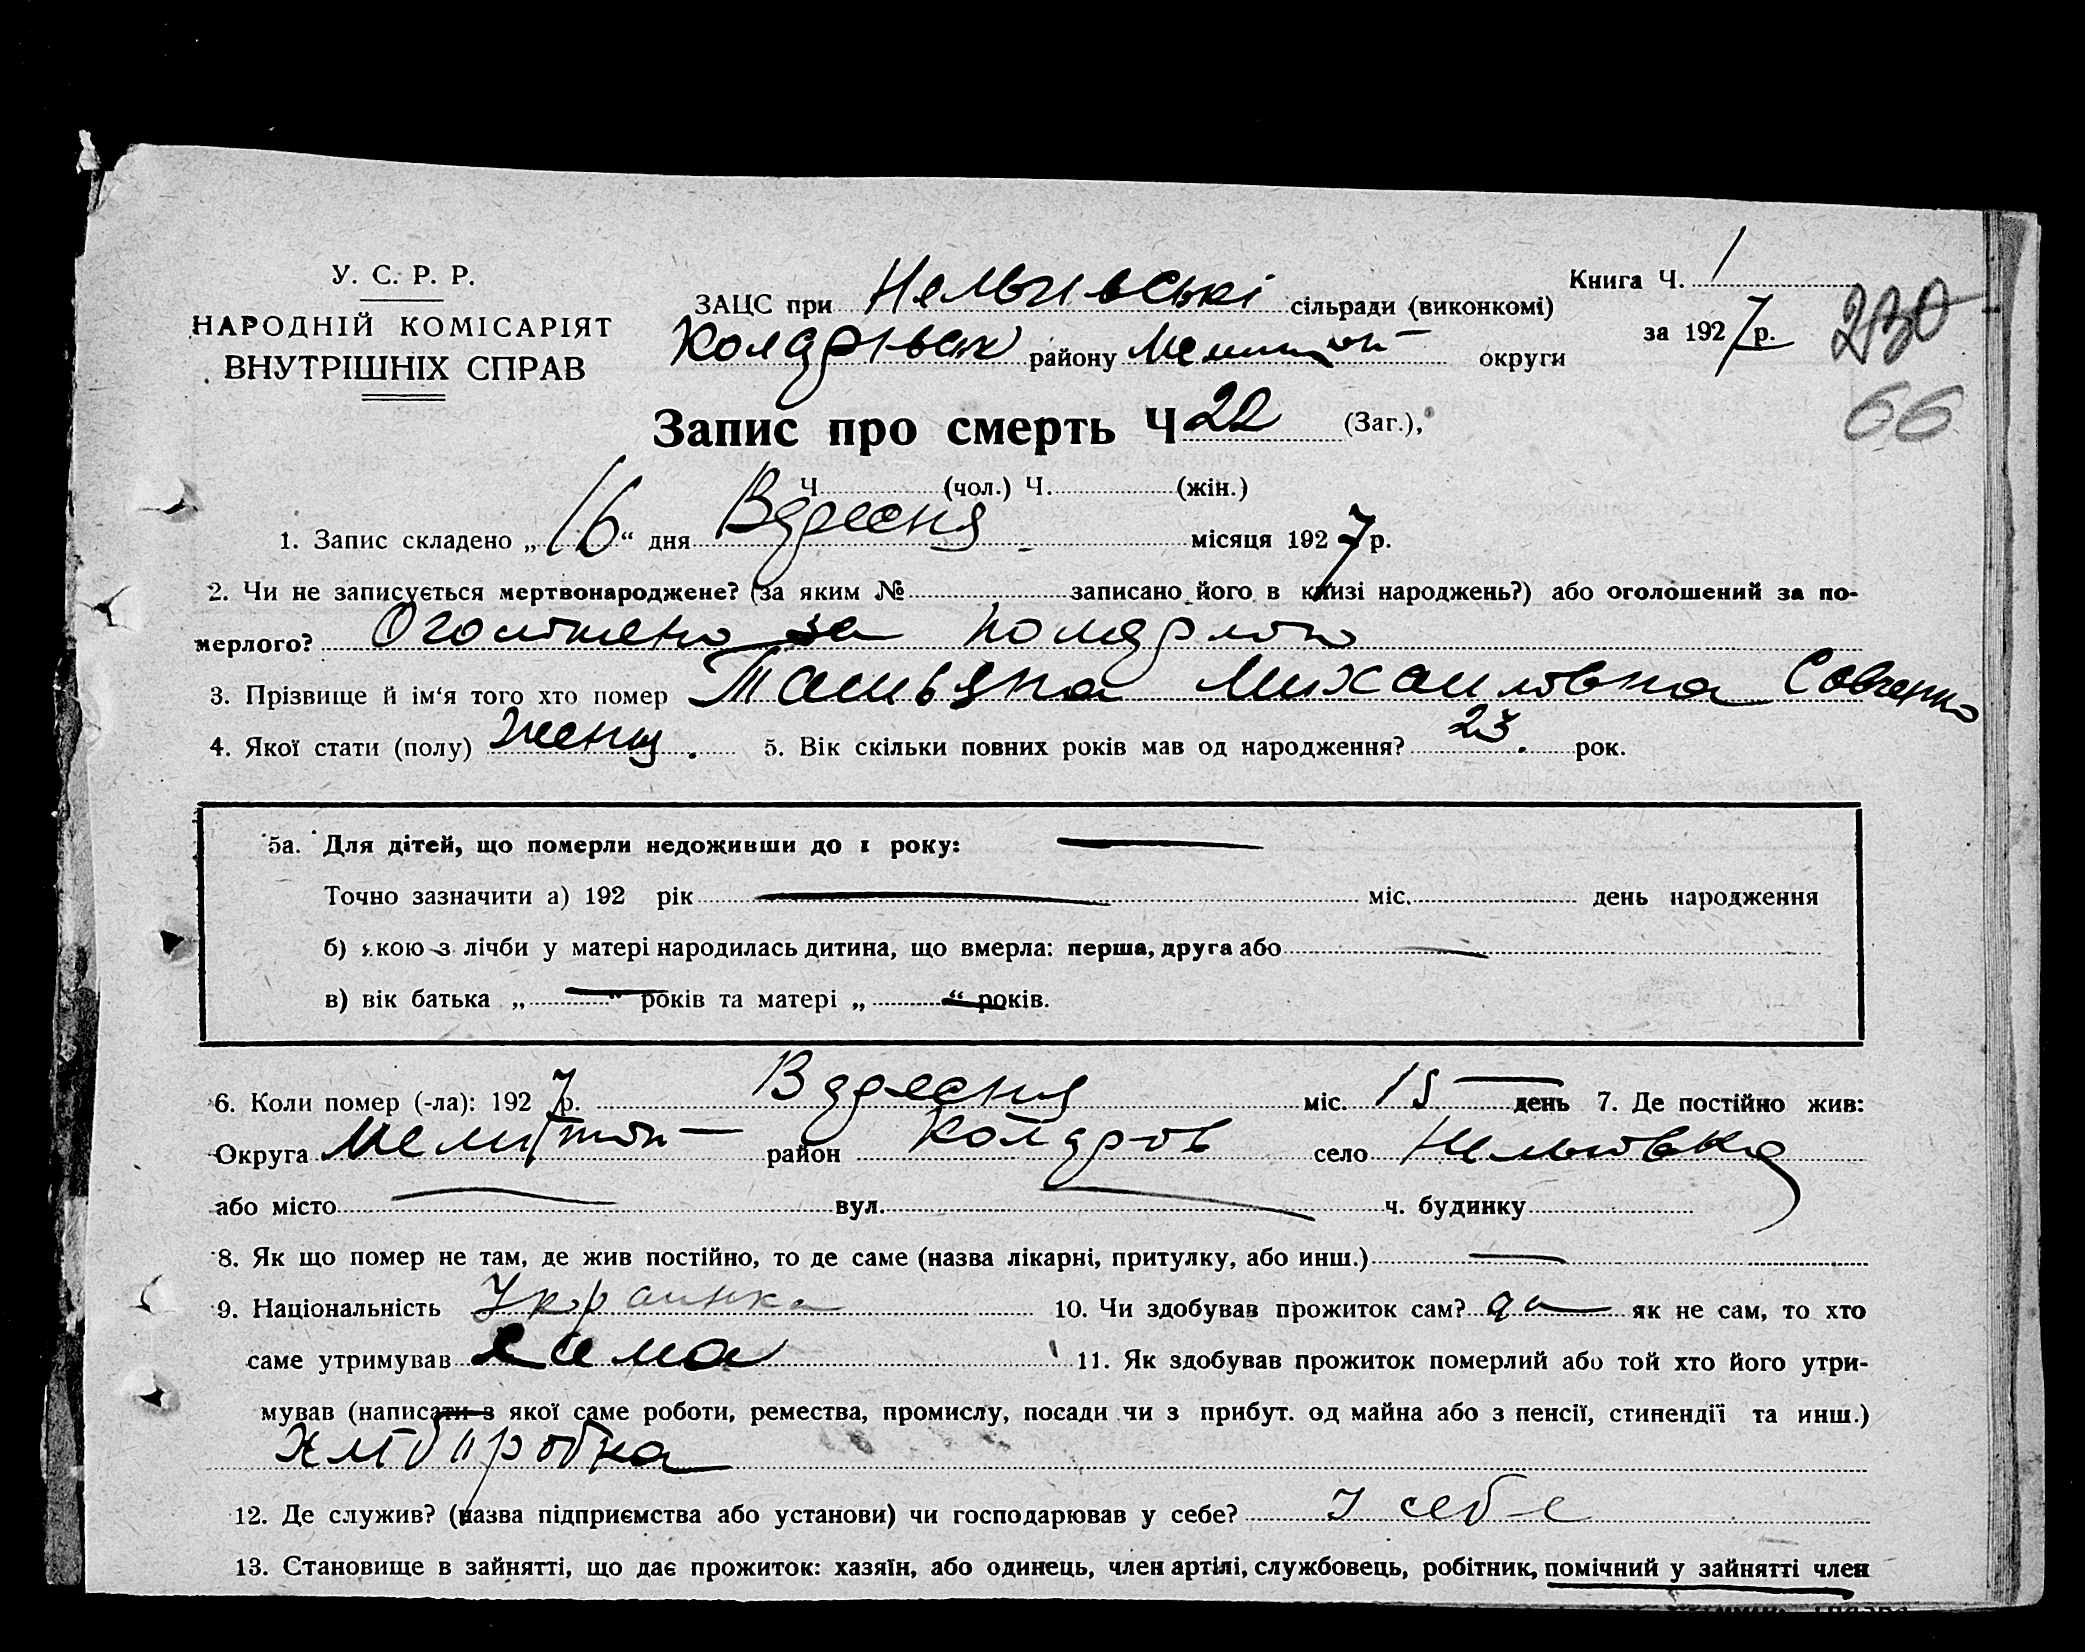 У. С. Р. Р.
НАРОДНІЙ КОМІСАРІЯТ
ВНУТРІШНІХ СПРАВ
Книга Ч. 1
за 1927 р.
230
66
ЗАЦС при сільради (виконкомі)
району округи
Запис про смерть Ч 22 (Заг.),
Ч. (чол.) Ч. (жін.)
1. Запис складено „16“ дня Вересня місяця 1927 р.
2. Чи не записується мертвонароджене? (за яким № записано його в книзі народжень?) або оголошений за по-
мерлого? за
3. Прізвище й ім‘я того хто помер Татьяна Михаиловна Савченко
4. Якої стати (полу) женщ. 5. Вік скільки повних років мав од народження? 23. рок.
5а. Для дітей, що померли недоживши до 1 року:
Точно зазначити а) 192 рік міс. день народження
б) якою з лічби у матері народилась дитина, що вмерла: перша, друга або
в) вік батька „ “ років та матері „ “ років.
6. Коли помер (-ла): 1927 р. Вересня міс. 15 день 7. Де постійно жив:
Округа Мелитоп район село
або місто вул. ч. будинку
8. Як що помер не там, де жив постійно, то де саме (назва лікарні, притулку, або инш.)
9. Національність Украинка 10. Чи здобував прожиток сам? да як не сам, то хто
саме утримував сама 11. Як здобував прожиток померлий або той хто його утри-
мував (написати з якої саме роботи, ремества, промислу, посади чи з прибут. од майна або з пенсії, стипендії та инш.)
12. Де служив? (назва підприємства або установи) чи господарював у себе? У себе
13. Становище в зайнятті, що дає прожиток: хазяїн, або одинець, член артілі, службовець, робітник, помічний у зайнятті член